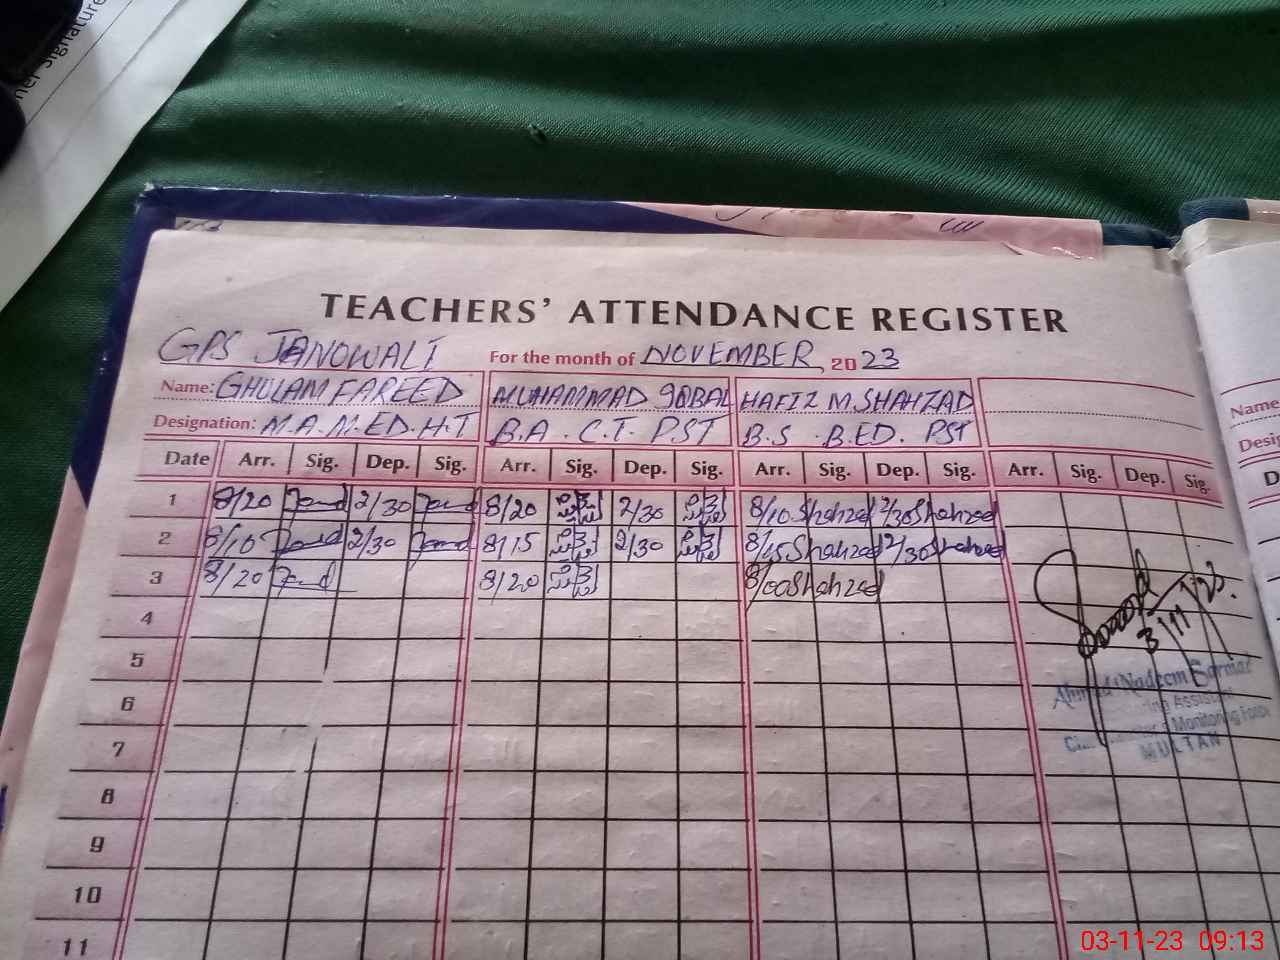 ner Signature
TEACHERS' ATTENDANCE REGISTER
GPS JANOWALI For the month of NOVEMBER, 2023
Name: GHULAM FAREED MUHAMMAD IQBAL HAFIZ M.SHAHZAD
Designation: M.A.M.ED.H.T B.A . C.T. PST B.S . B.ED. PST
Date Arr. Sig. Dep. Sig. Arr. Sig. Dep. Sig. Arr. Sig. Dep. Sig. Arr. Sig. Dep. Sig.
1 8/20 2/30 8/20 2/30 8/10 Shahzad 2/30 Shahzad
2 8/10 2/30 8/15 2/30 8/15 Shahzad 2/30 Shahzad
3 8/20 8/20 8/00 Shahzad
4
5
6
7
8
9
10
11
3/11/23.
Ahmad Nadeem Sarmad
Monitoring Force
MULTAN
Name
D
03-11-23 09:13